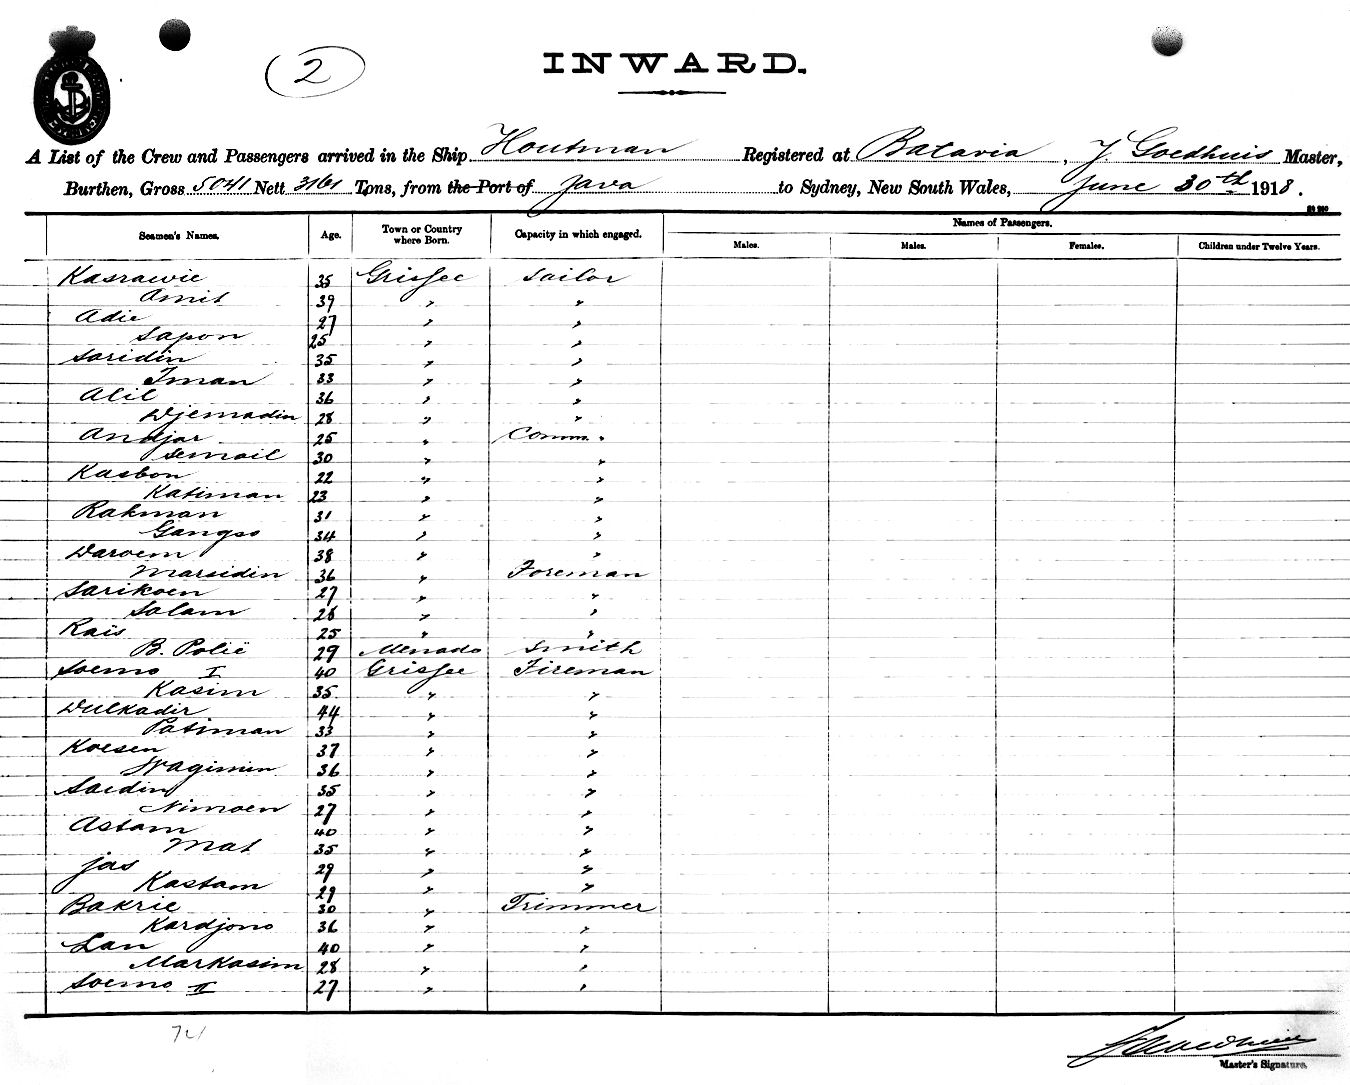 2
INWARD.
A List of the Crew and Passengers arrived in the Ship Houtman Registered at Batavia, J. Goedhuis Master,
Burthen, Gross 5041 Nett 3161 Tons, from the Port of Java to Sydney, New South Wales, June 30th 1918.
Names of Passengers.
Seamen's Names. Age. Town or Country where Born. Capacity in which engaged. Males. Males. Females. Children under Twelve Years.
Kasrawie 35 Grissee Sailor
Amit 39 " "
Adie 27 " "
Sapon 25 " "
Saridin 35 " "
Iman 33 " "
Alil 36 " "
Djemadin 28 " "
Andjar 25 " Comm. "
Semail 30 " "
Kasbon 22 " "
Katiman 23 " "
Rakman 31 " "
Gangso 34 " "
Daroem 38 " "
Marsidin 36 " Foreman
Sarikoen 27 " "
Salam 28 " "
Raïs 25 " "
B. Polië 29 Menado Smith
Soemo I 40 Grissee Fireman
Kasim 35 " "
Dulkadir 44 " "
Patiman 33 " "
Koesen 37 " "
Wagimin 36 " "
Saidin 35 " "
Nimoen 27 " "
Astam 40 " "
Mat 35 " "
Jas 29 " "
Kastam 29 " "
Bakrie 30 " Trimmer
Kardjono 36 " "
Lan 40 " "
Markasim 28 " "
Soemo II 27 " "
Master's Signature.